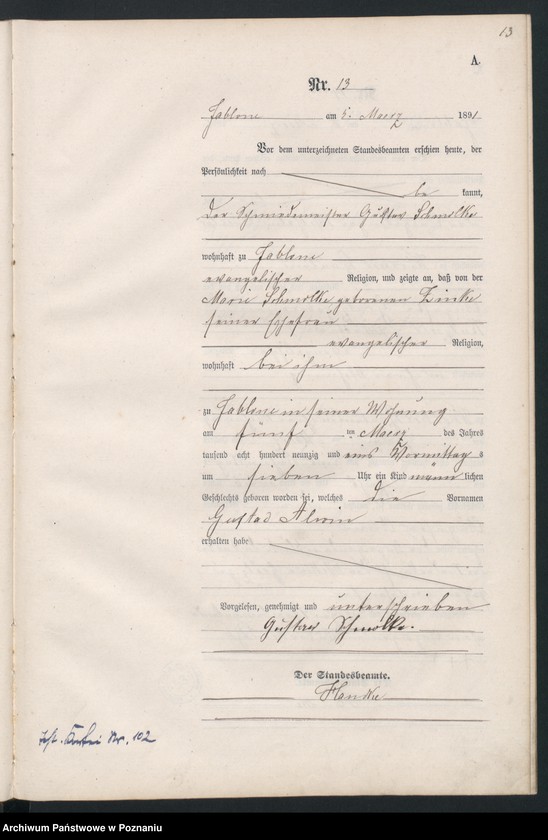 13
A.
Nr. 13
Jablone am 6. Maerz 1891
Vor dem unterzeichneten Standesbeamten erschien heute, der
Persönlichkeit nach
be kannt,
der Schmiedemeister Gustav Schmolke
wohnhaft zu Jablone
evangelischer Religion, und zeigte an, daß von der
Marie Schmolke geborenen Zinke
seiner Ehefrau
evangelischer Religion,
wohnhaft bei ihm
zu Jablone in seiner Wohnung
am fünf ten Maerz des Jahres
tausend acht hundert neunzig und eins Vormittag s
um sieben Uhr ein Kind männ lichen
Geschlechts geboren worden sei, welches die Vornamen
Gustav Alwin
erhalten habe
Vorgelesen, genehmigt und unterschrieben
Gustav Schmolke.
Der Standesbeamte.
Nr. 102
Archiwum Państwowe w Poznaniu